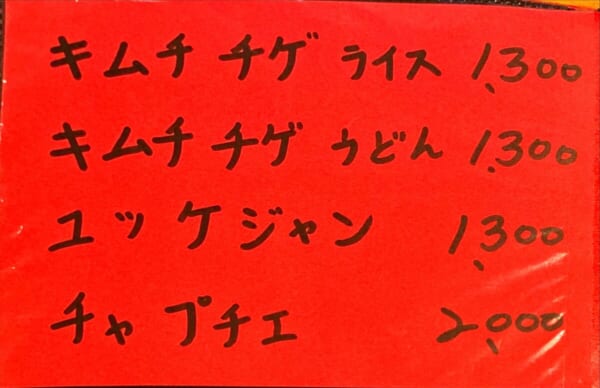 キムチ チゲ ライス 1,300
キムチ チゲ うどん 1,300
ユッケジャン 1,300
チャプチェ 2,000